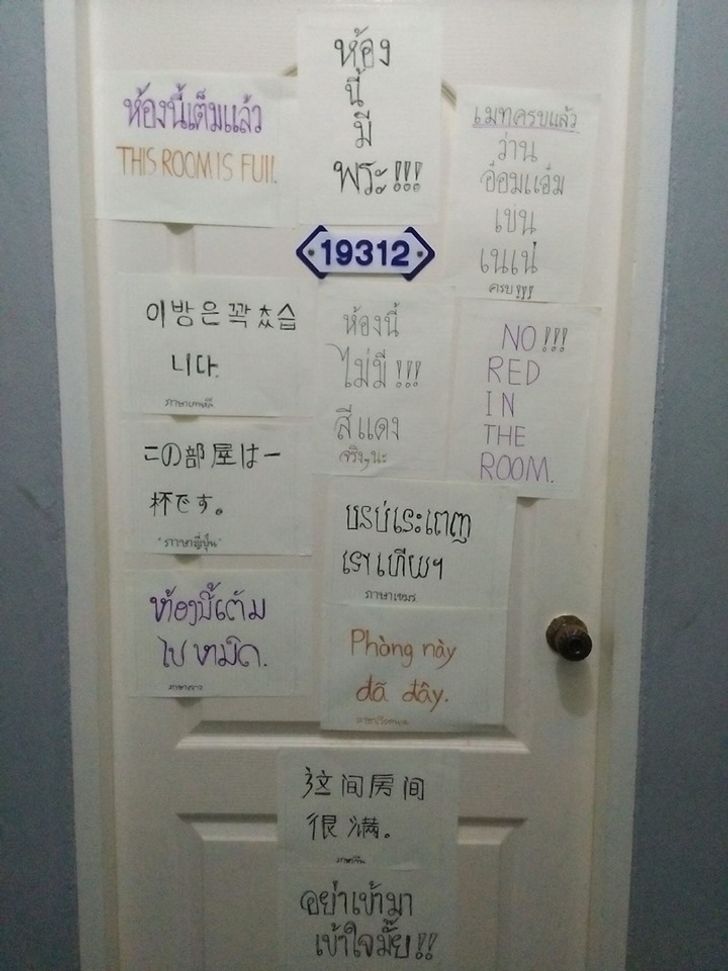 ห้อง
นี้
มี
พระ!!!
ห้องนี้เต็มแล้ว
THIS ROOM IS FUll.
เมทครบแล้ว
ว่าน
อ๋อมแอ๋ม
เข่น
เนเน่
ครบ!!!
19312
이 방은 꽉 찼습
니다.
ภาษาเกาหลี
ห้องนี้
ไม่มี!!!
สีแดง
จริงๆนะ
NO!!!
RED
IN
THE
ROOM.
この部屋は一
杯です。
"ภาษาญี่ปุ่น"
បន្ទប់នេះពេញ
ទៅហើយ។
ภาษาเขมร
ห้องนี้เต้ม
ไปหมิด.
ภาษาลาว
Phòng này
đã đây.
ภาษาเวียดนาม
这间房间
很满。
ภาษาจีน
อย่าเข้ามา
เข้าใจมั้ย!!